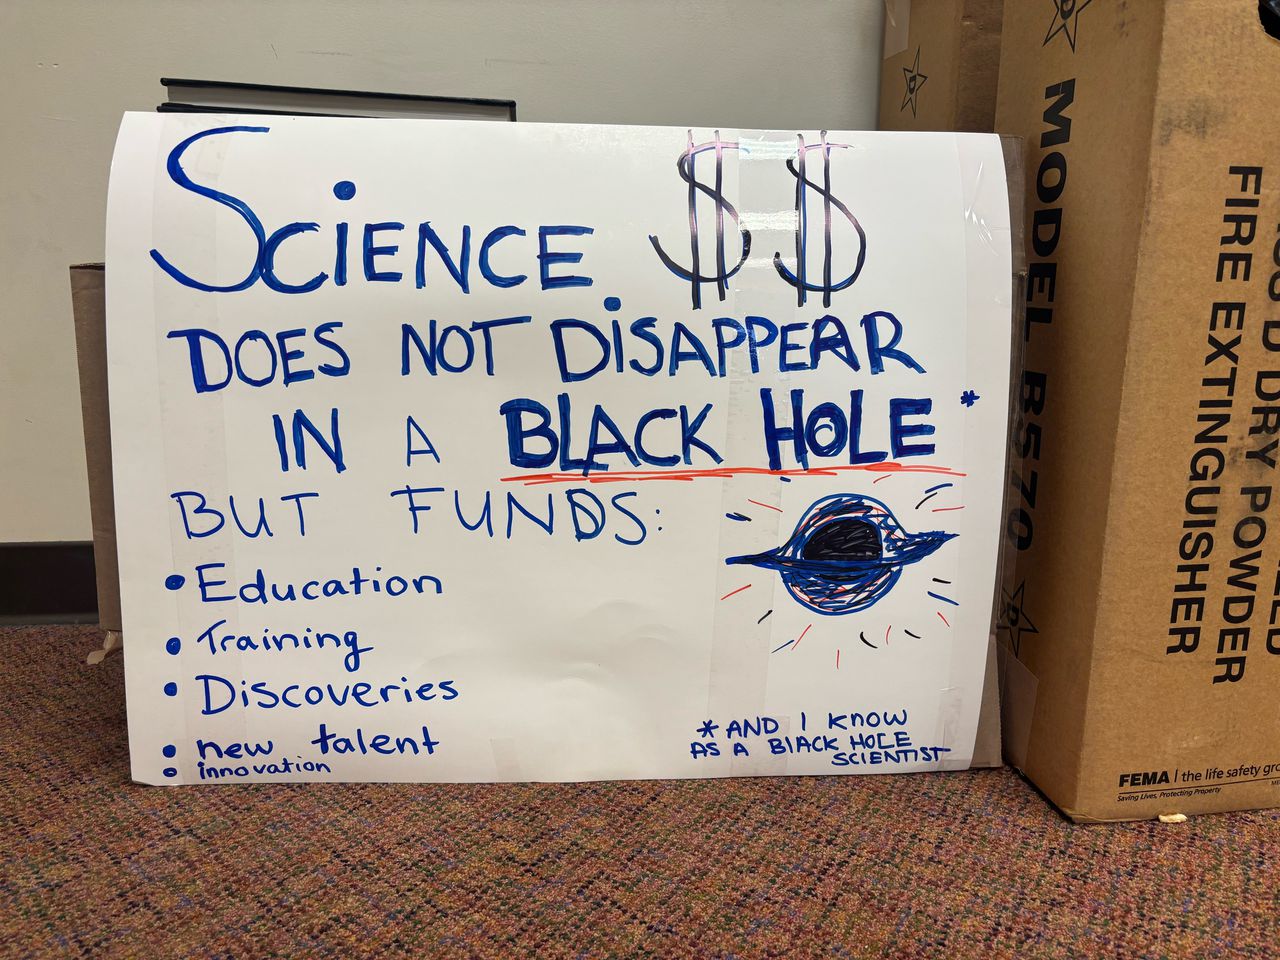 SCIENCE $$
DOES NOT DISAPPEAR
IN A BLACK HOLE*
BUT FUNDS:
• Education
• Training
• Discoveries
• new talent
• innovation
*AND I KNOW
AS A BLACK HOLE
SCIENTIST
MODEL B570
DRY POWDER
FIRE EXTINGUISHER
FEMA | the life safety
Saving Lives, Protecting Property